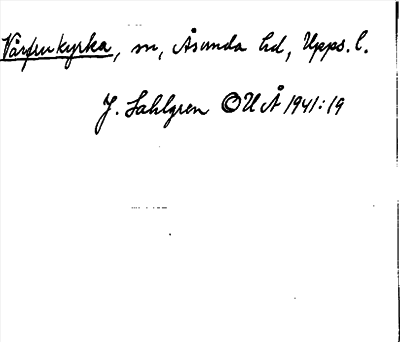 Vårfrukyrka, sn, Åsunda hd, Upps. l.
J. Sahlgren OUÅ 1941:19